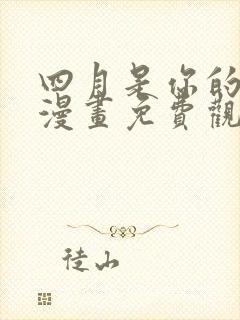 四月是你的
漫畫免費觀
徒山